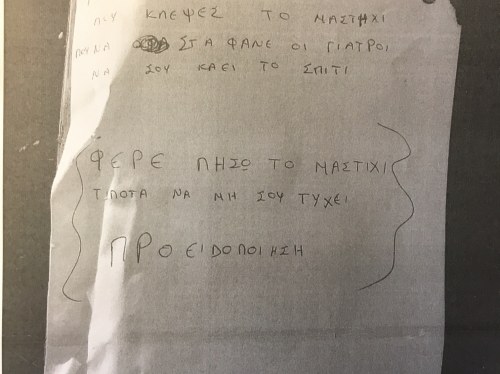 ΠΟΥ ΚΛΕΨΕΣ ΤΟ ΜΑΣΤΗΧΙ
ΠΟΥ ΝΑ ΣΤΑ ΦΑΝΕ ΟΙ ΓΙΑΤΡΟΙ
ΝΑ ΣΟΥ ΚΑΕΙ ΤΟ ΣΠΙΤΙ
ΦΕΡΕ ΠΗΣΩ ΤΟ ΜΑΣΤΙΧΙ
ΤΙΠΟΤΑ ΝΑ ΜΗ ΣΟΥ ΤΥΧΕΙ
ΠΡΟΕΙΔΟΠΟΙΗΣΗ